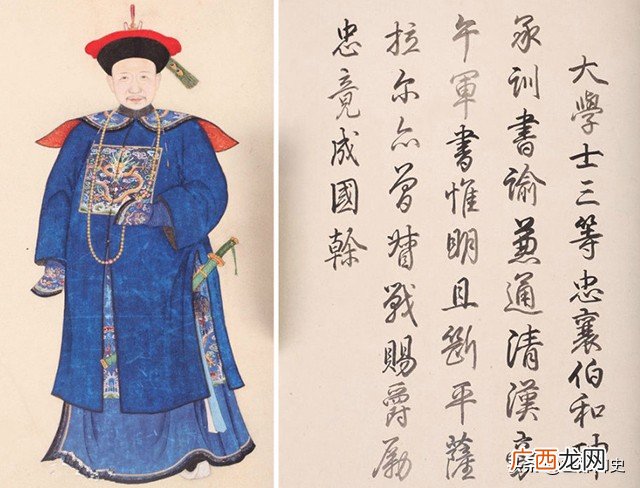 大學士三等忠襄伯和珅
承訓書諭兼通清漢旁
午軍書惟明且斷平薩
拉爾亦曾督戰賜爵勵
忠竟成國幹
广西龙网